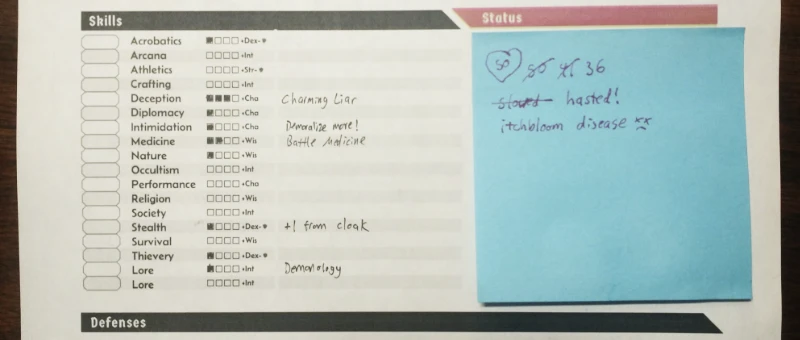 Skills
Acrobatics +Dex-
Arcana +Int
Athletics +Str-
Crafting +Int
Deception +Cha Charming Liar
Diplomacy +Cha
Intimidation +Cha Demoralize more!
Medicine +Wis Battle Medicine
Nature +Wis
Occultism +Int
Performance +Cha
Religion +Wis
Society +Int
Stealth +Dex- +1 from cloak
Survival +Wis
Thievery +Dex-
Lore +Int Demonology
Lore +Int
Defenses
Status
50 36
slowed hasted!
itchbloom disease